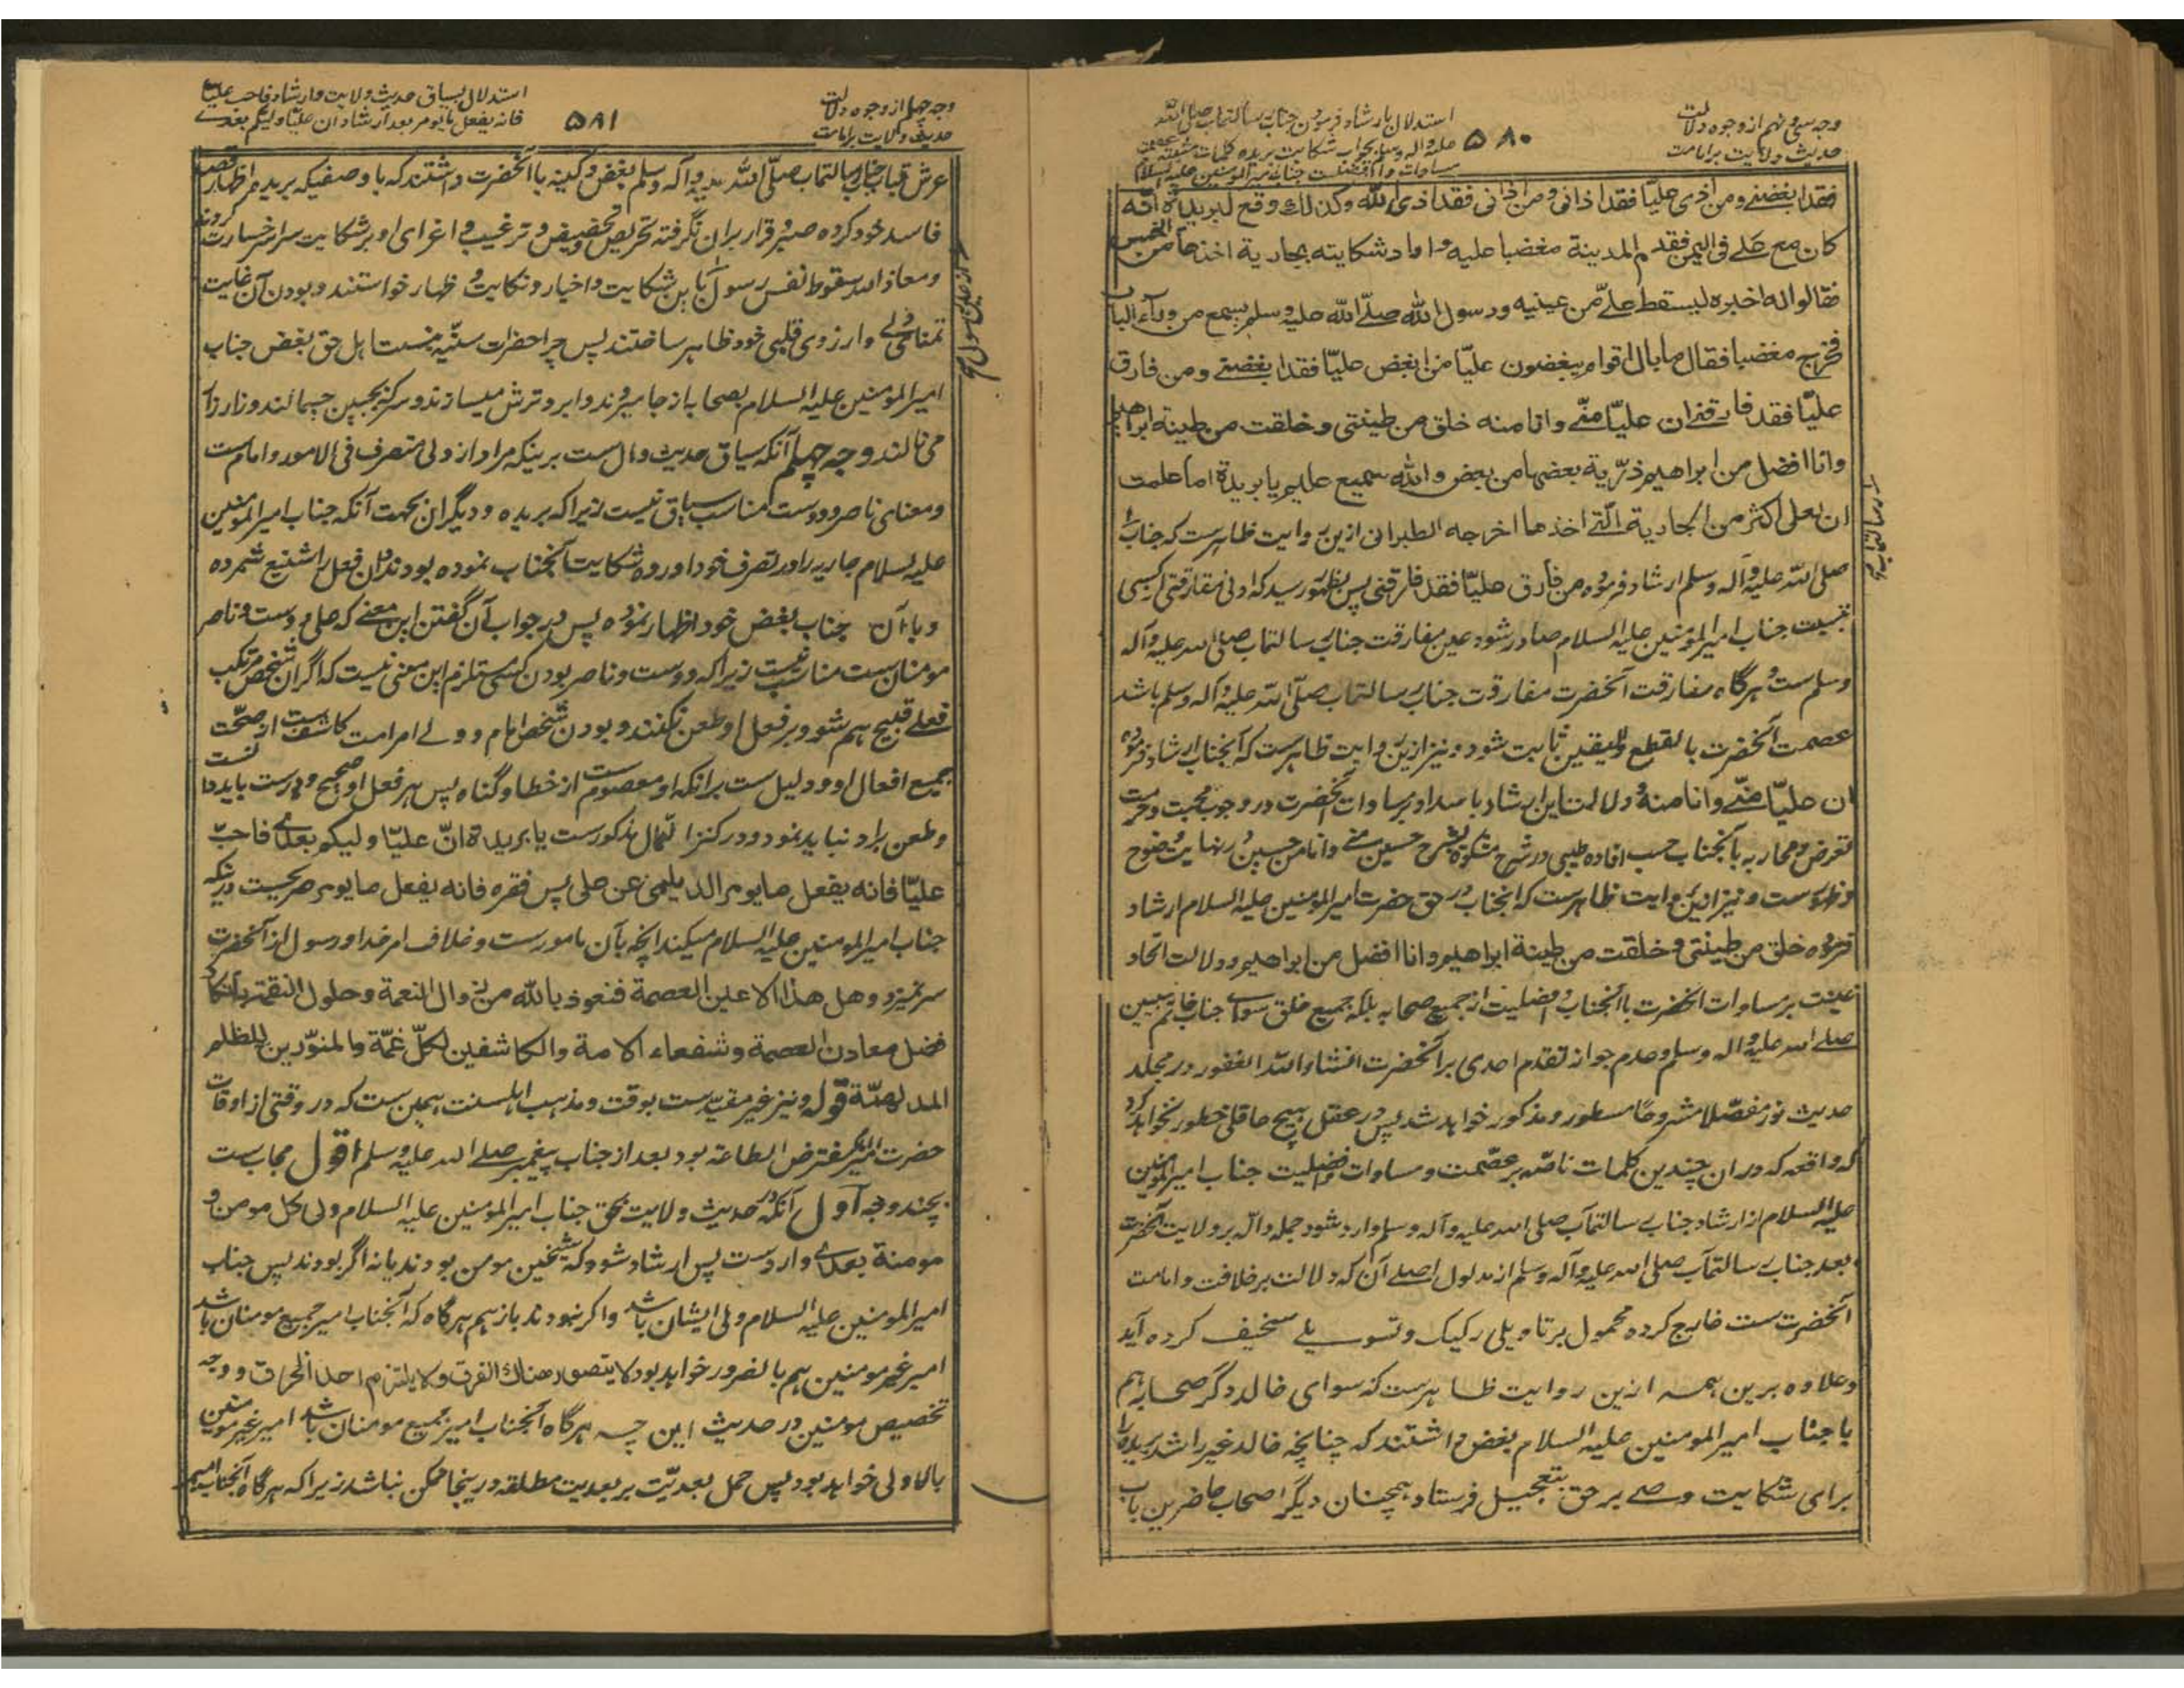 وجه سی و نهم از وجوه دلالت
حدیث ولایت بر امامت
۵۸۰
استدلال بارشاد فرمودن جناب رسالتمآب صلی الله
علیه واله وسلم بجواب شکایت بریده کلمات مثبته عصمت
مساوات و افضلیت جناب امیرالمومنین علیه السلام
فقد ابغضنے ومن اذی علیّا فقد اذانی ومن اذانی فقد اذی الله وکذلك وقع لبریدة انّه
کان مع علے فی الیمن فقدم المدینة مغضبا علیه واراد شکایته بجاریة اخذها من الخمس
فقالوا له اخبره لیسقط علےّ من عینیه ورسول الله صلّے الله علیه وسلم یسمع من وراء الباب
فخرج مغضبا فقال ما بال اقوام یبغضون علیّا من ابغض علیّا فقد ابغضنے ومن فارق
علیّا فقد فارقنے ان علیّا منّے وانا منه خلق من طینتی وخلقت من طینة ابراهیم
وانا افضل من ابراهیم ذرّیة بعضها من بعض والله سمیع علیم یا بریدة اما علمت
ان لعلی اکثر من الجاریة الّتے اخذها اخرجه الطبرانی ازین روایت ظاهرست که جناب
صلی الله علیه وآله وسلم ارشاد فرموده من فارق علیّا فقد فارقنی پس بظهور رسید که ادنی مفارقتی که سبی
نسبت جناب امیرالمؤمنین علیه السلام صادر شود عین مفارقت جناب رسالتمآب صلی الله علیه وآله
وسلم ست و هرگاه مفارقت آنحضرت مفارقت جناب رسالتمآب صلّی الله علیه وآله وسلم باشد
عصمت آنحضرت بالقطع والیقین ثابت شود و نیز ازین روایت ظاهرست که آنجناب ارشاد فرموده
ان علیّا منّے وانا منه و دلالت این ارشاد باسداد بر مساوات آنحضرت در وجوب محبت و حرمت
تعرض و محاربه با آنجناب حسب افاده طیبی در شرح مشکوة بشرح حسین منے وانا من حسین در نهایت وضوح
و ظهورست و نیز ازین روایت ظاهرست که آنجناب در حق حضرت امیرالمومنین علیه السلام ارشاد
فرموده خلق من طینتی وخلقت من طینة ابراهیم وانا افضل من ابراهیم و دلالت اتحاد
طینت بر مساوات آنحضرت با آنجناب و افضلیت از جمیع صحابه بلکه جمیع خلق سوای جناب خاتم النبیین
صلے الله علیه واله وسلم و عدم جواز تقدم احدی بر آنحضرت انشاء الله الغفور در مجلد
حدیث نور مفصّلا مشروحًا مسطور و مذکور خواهد شد پس در عقل هیچ عاقلی خطور نخواهد کرد
که واقعه که دران چندین کلمات ناصّه بر عصمت و مساوات و افضلیت جناب امیرالمومنین
علیه السلام از ارشاد جناب رسالتمآب صلی الله علیه وآله وسلم وارد شود جمله دالّه بر ولایت آنحضرت
بعد جناب رسالتمآب صلی الله علیه وآله وسلم از مدلول اصلے آن که دلالت بر خلافت و امامت
آنحضرت ست خارج کرده محمول بر تاویلی رکیک و تسویلے سخیف کرده آید
وعلاوه برین همه ازین روایت ظاهرست که سوای خالد دگر صحابه هم
با جناب امیرالمومنین علیه السلام بغض داشتند که چنانچه خالد غیر راشد بریده را
برای شکایت وصے برحق بتعجیل فرستاد همچنان دیگر اصحاب حاضرین باب
وجه چهلم از وجوه دلالت
حدیث ولایت بر امامت
۵۸۱
استدلال بسیاق حدیث ولایت وارشاد فاحب علیّا
فانه یفعل ما یومر بعد ارشاد ان علیّا ولیکم بعدے
عرش قباب جناب رسالتمآب صلّی الله علیه وآله وسلم بغض و کینه با آنحضرت داشتند که با وصفیکه بریده اظهار قصد
فاسد خود کرده صبر و قرار بران نگرفته تحریص و تحضیض و ترغیب و اغرای او بر شکایت سراسر خسارت کردند
و معاذ الله سقوط نفس رسول باین شکایت و اخبار و نکایت اظهار خواستند و بودن آن غایت
تمنای دلے و ارزوی قلبی خود ظاهر ساختند پس چرا حضرات سنّیه بنسبت اهل حق بغض جناب
امیرالمؤمنین علیه السلام بصحابه از جا میروند و ابرو ترش میسازند و سرکه بجبین میمالند و زار زار
می نالند وجه چهلم آنکه سیاق حدیث دال ست برینکه مراد از ولی متصرف فی الامور و امام ست
و معنای ناصر و دوست مناسب سیاق نیست زیرا که بریده و دیگران بجهت آنکه جناب امیرالمومنین
علیه السلام جاریه را در تصرف خود آورده شکایت آنجناب نموده بودند و آن فعل را شنیع شمرده
و با آن جناب بغض خود اظهار نموده پس در جواب آن گفتن این معنے که علی دوست و ناصر
مومنان ست مناسب نیست زیرا که دوست و ناصر بودن کسے مستلزم این معنی نیست که اگر ان شخص مرتکب
فعلے قبیح هم شود بر فعل او طعن نکنند و بودن شخص امام و ولے امر امت کاشف ست از صحّت
جمیع افعال او و دلیل ست برانکه او معصوم ست از خطا و گناه پس هر فعل او صحیح و درست باید دانست
و طعن براو نباید نمود و در کنز العمال مذکورست یا بریدة انّ علیّا ولیکم بعدی فاحبّ
علیّا فانه یفعل ما یومر الدیلمی عن علی پس فقره فانه یفعل ما یومر صریحست درینکه
جناب امیرالمومنین علیه السلام میکند آنچه بآن مامورست و خلاف امر خدا و رسول از آنحضرت
سر نمیزد و وهل هذا الا عین العصمة فنعوذ بالله من زوال النعمة وحلول النقمة بانکار
فضل معادن العصمة وشفعاء الامة والکاشفین لکلّ غمّة والمنوّرین للظلم
المدلهمّة قوله و نیز غیر مقیّدست بوقت و مذهب اهلسنت همین ست که در وقتی از اوقات
حضرت امیر مفترض الطاعة بود بعد از جناب پیغمبر صلے الله علیه وسلم اقول مجاب ست
بچند وجه اول آنکه در حدیث ولایت بحق جناب امیرالمؤمنین علیه السلام ولی کل مومن و
مومنة بعدے واردست پس ارشاد شود که شیخین مومن بودند یا نه اگر بودند پس جناب
امیرالمومنین علیه السلام ولی ایشان باشد و اکر نبودند باز هم هرگاه که آنجناب امیر جمیع مومنان باشد
امیر غیر مومنین هم بالضرور خواهد بود لا یتصور هناك الفرق ولا یلتزم احد الخرق و وجه
تخصیص مومنین در حدیث این چه هرگاه آنجناب امیر جمیع مومنان باشد امیر غیر مومنین
بالاولی خواهد بود پس حمل بعدیّت بر بعدیت مطلقه درینجا ممکن نباشد زیرا که هرگاه آنجناب امیر